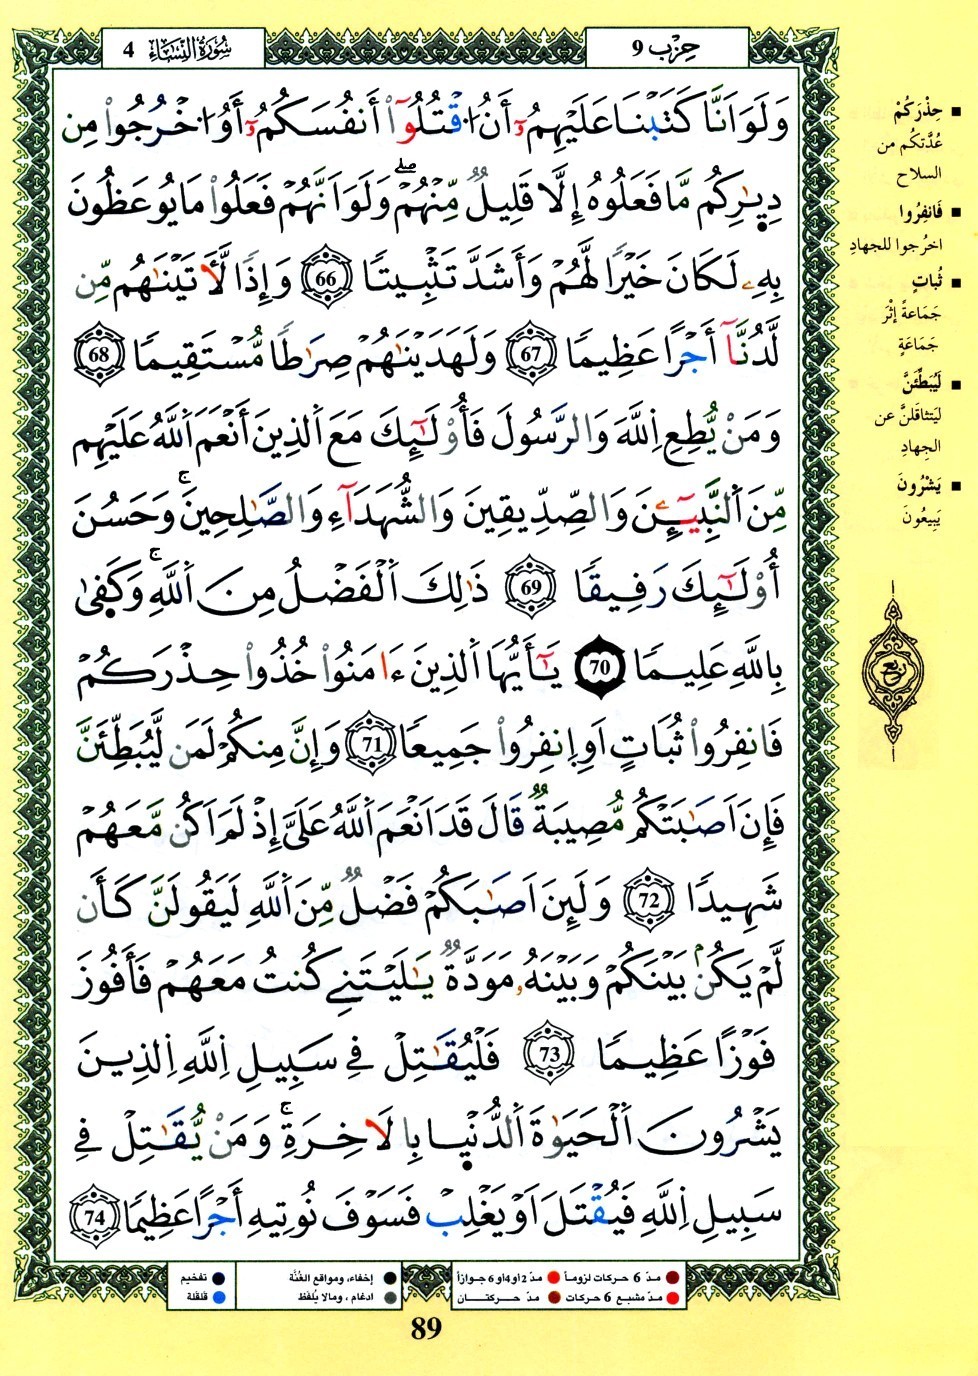 سُورَةُ النِّسَاءِ 4
حِزْب 9
وَلَوَ اَنَّا كَتَبْنَا عَلَيْهِمُۥٓ أَنُ اُ۟قْتُلُوٓاْ أَنفُسَكُمُۥٓ أَوُ اُ۟خْرُجُواْ مِن
دِيٰ۪رِكُم مَّا فَعَلُوهُ إِلَّا قَلِيلٌ مِّنْهُمْۖ وَلَوَ اَنَّهُمْ فَعَلُواْ مَا يُوعَظُونَ
بِهِۦ لَكَانَ خَيْراً لَّهُمْ وَأَشَدَّ تَثْبِيتاً 66 وَإِذاً لَّأَتَيْنَٰهُم مِّن
لَّدُنَّآ أَجْراً عَظِيماً 67 وَلَهَدَيْنَٰهُمْ صِرَٰطاً مُّسْتَقِيماً 68
وَمَنْ يُّطِعِ اِللَّهَ وَالرَّسُولَ فَأُوْلَٰٓئِكَ مَعَ اَلذِينَ أَنْعَمَ اَللَّهُ عَلَيْهِم
مِّنَ اَلنَّبِيٓـِٕينَ وَالصِّدِّيقِينَ وَالشُّهَدَآءِ وَالصَّٰلِحِينَۚ وَحَسُنَ
أُوْلَٰٓئِكَ رَفِيقاً 69 ذَٰلِكَ اَلْفَضْلُ مِنَ اَللَّهِۚ وَكَفَىٰ
بِاللَّهِ عَلِيماً 70 يَٰٓأَيُّهَا اَلذِينَ ءَامَنُواْ خُذُواْ حِذْرَكُمْ
فَانفِرُواْ ثُبَاتٍ اَوِ اِنفِرُواْ جَمِيعاً 71 وَإِنَّ مِنكُمْ لَمَن لَّيُبَطِّئَنَّ
فَإِنَ اَصَٰبَتْكُم مُّصِيبَةٌ قَالَ قَدَ اَنْعَمَ اَللَّهُ عَلَيَّ إِذْ لَمَ اَكُن مَّعَهُمْ
شَهِيداً 72 وَلَئِنَ اَصَٰبَكُمْ فَضْلٌ مِّنَ اَللَّهِ لَيَقُولَنَّ كَأَن
لَّمْ يَكُنۢ بَيْنَكُمْ وَبَيْنَهُۥ مَوَدَّةٌ يَٰلَيْتَنِي كُنتُ مَعَهُمْ فَأَفُوزَ
فَوْزاً عَظِيماً 73 فَلْيُقَٰتِلْ فِي سَبِيلِ اِللَّهِ اِلذِينَ
يَشْرُونَ اَلْحَيَوٰةَ اَلدُّنْي۪ا بِالَاخِرَةِۚ وَمَنْ يُّقَٰتِلْ فِي
سَبِيلِ اِللَّهِ فَيُقْتَلَ اَوْ يَغْلِبْ فَسَوْفَ نُوتِيهِ أَجْراً عَظِيماً 74
▪ حِذْرَكُمْ
عُدَّتكُم من
السلاح
▪ فَانفِرُوا
اخرُجوا للجهادِ
▪ ثُباتٍ
جَمَاعةً إثْرَ
جَمَاعَةٍ
▪ لَيُبَطِّئَنَّ
لَيَتثاقَلنَّ عن
الجِهادِ
▪ يَشْرُونَ
يَبِيعُونَ
ربع
● مدّ 6 حركات لزوماً ● مدّ 2 او 4 او 6 جوازاً
● مدّ مشبع 6 حركات ● مدّ حركتــان
● إخفاء، ومواقع الغُنَّة
● ادغام ، ومالا يُلفَظ
● تفخيم
● قلقلة
89